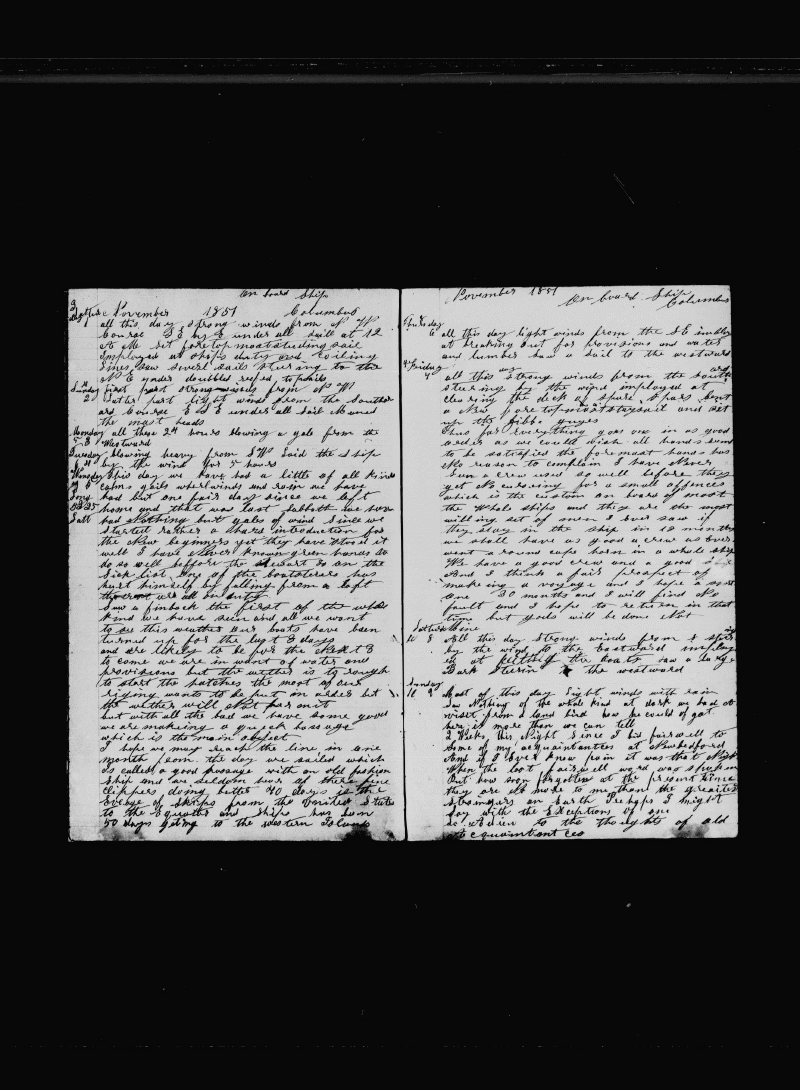 On board Ship
November 1851 Columbus
all this day strong winds from N W
Course S E by E under all sail at 12
At M set foretopmaststudingsail
Employed at ships duty and coiling
lines saw severl sails stering to the
N E under doubled refed topsails
Sunday first part strong winds from N W
2 Later part light wind from the Southw
ard Course E S E under all sail Maned
the mast heads
Monday all these 24 hours blowing a gale from the
3 Westward
Tuesday blowing heavy from SW laid the ship
4 by the wind for 5 hours
Wensday this day we have had a little of all kinds
5 calms gails wherlwinds and rain we have
had but one fair day since we left
home and that was last Sabbath we have
had Nothing but gales of wind Since we
started rather a hard introduction for
the New beginners yet they have stood it
well I have Never known green hands to
do so well beffore the Stuart is on the
Sick list One of the boatsterers has
hurt himself by falling from a loft
the rest are all on duty
Saw a finback the first of the whale
kind we have seen and all we want
to see this weather Our boats have been
turned up for the last 3 days
and are likely to be for the Next 3
to come we are in want of water and
provisions but the wether is to rough
to start the hatches the most of our
riging wants to be put in order but
the wether will Not permit
but with all the bad we have some good
we are making a quick passage
which is the main object
I hope we may reach the line in one
month from the day we sailed which
is called a good passage with an old fashion
ship and are seldom but of these fine
Clippers doing better 40 days is the
Averge of Ships from the United States
to the Equator and Ships has been
50 days going to the western Islands
November 1851
On board Ship Columbus
Thursday
6 all this day light winds from the S E imploy
at breaking out for provisions and water
and lumber saw a sail to the westward
Friday
7 all this day strong winds from the South ard
steering by the wind imployed at
clearing the deck of spare Spars bent
a New foretopmaststaysail and set
up the jibbs guyes
Thus far everything goes on in as good
order as we could wish all hands seem
to be satisfied the foremast hands has
No reason to complain I have Never
Seen a crew used so well before they
get No cursing for a small offences
which is the custom on board of most
the Whale ships and they are the most
willing set of men I ever saw if
they stay in the ship in 20 months
we shall have as good a crew as Ever
went around cape horn in a whale ship
We have a good crew and a good ship
And I think a fair prospect of
making a voyage and I hope
one 30 months and I will find No
fault and I hope to return in that
time but gods will be done Not
Mine
8 All this day Strong winds from S
by the wind to the Eastward imploy
ed at the boats saw a large
Bark Steerin to the westward
Sunday
9 Most of this day light winds with rain
Saw Nothing of the whale kind at dark we had a
visit from a land bird how he could of got
here is more than we can tell
2 Weeks this Night Since I bid fairwell to
some of my acquaintences at Newbedford
And if I Ever knew pain it was that Night
When the last fairwell word was spoken
But how soon forgotten at the present time
they are No more to me than the greatest
Strangers on Earth Perhaps I might
say with the Exceptions of one
to the thoughts of old
acquaintances